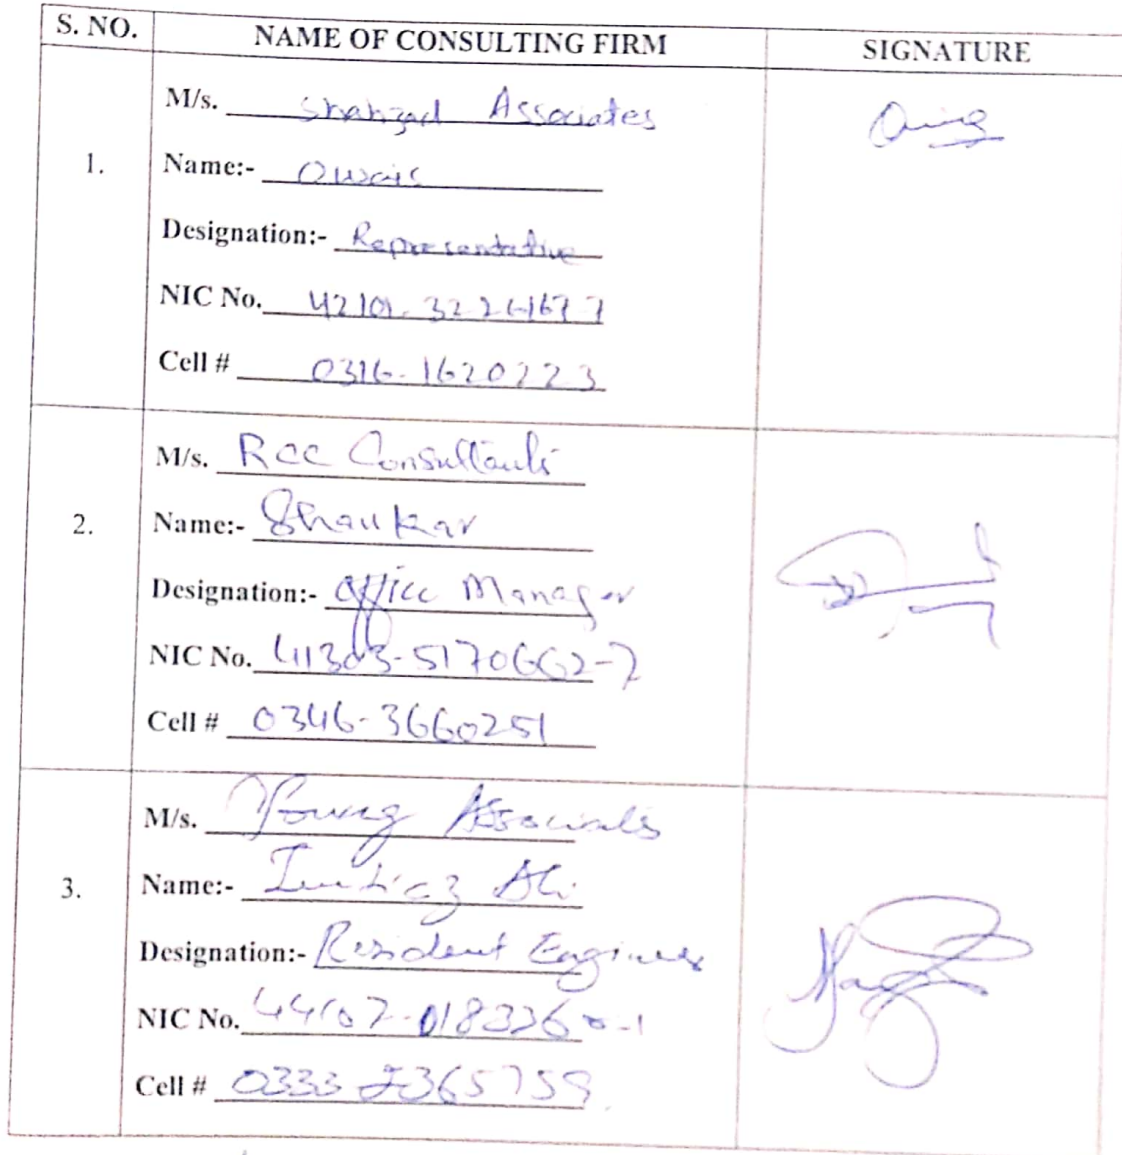 S. NO. NAME OF CONSULTING FIRM SIGNATURE
M/s. Shahzad Associates
1. Name:- Owais
Designation:- Representative
NIC No.
Cell # 0316-1620223
M/s. Rcc Consultants
2. Name:- Shankar
Designation:- Office Manager
NIC No. 41303-5170662-7
Cell # 0346-3660251
M/s. Young Associats
3. Name:- Imtiaz Ali
Designation:- Resident Engineer
NIC No.
Cell # 0333